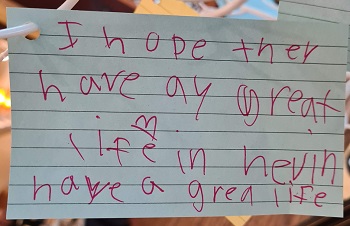 I hope ther
have ay great
life in hevin
have a grea life